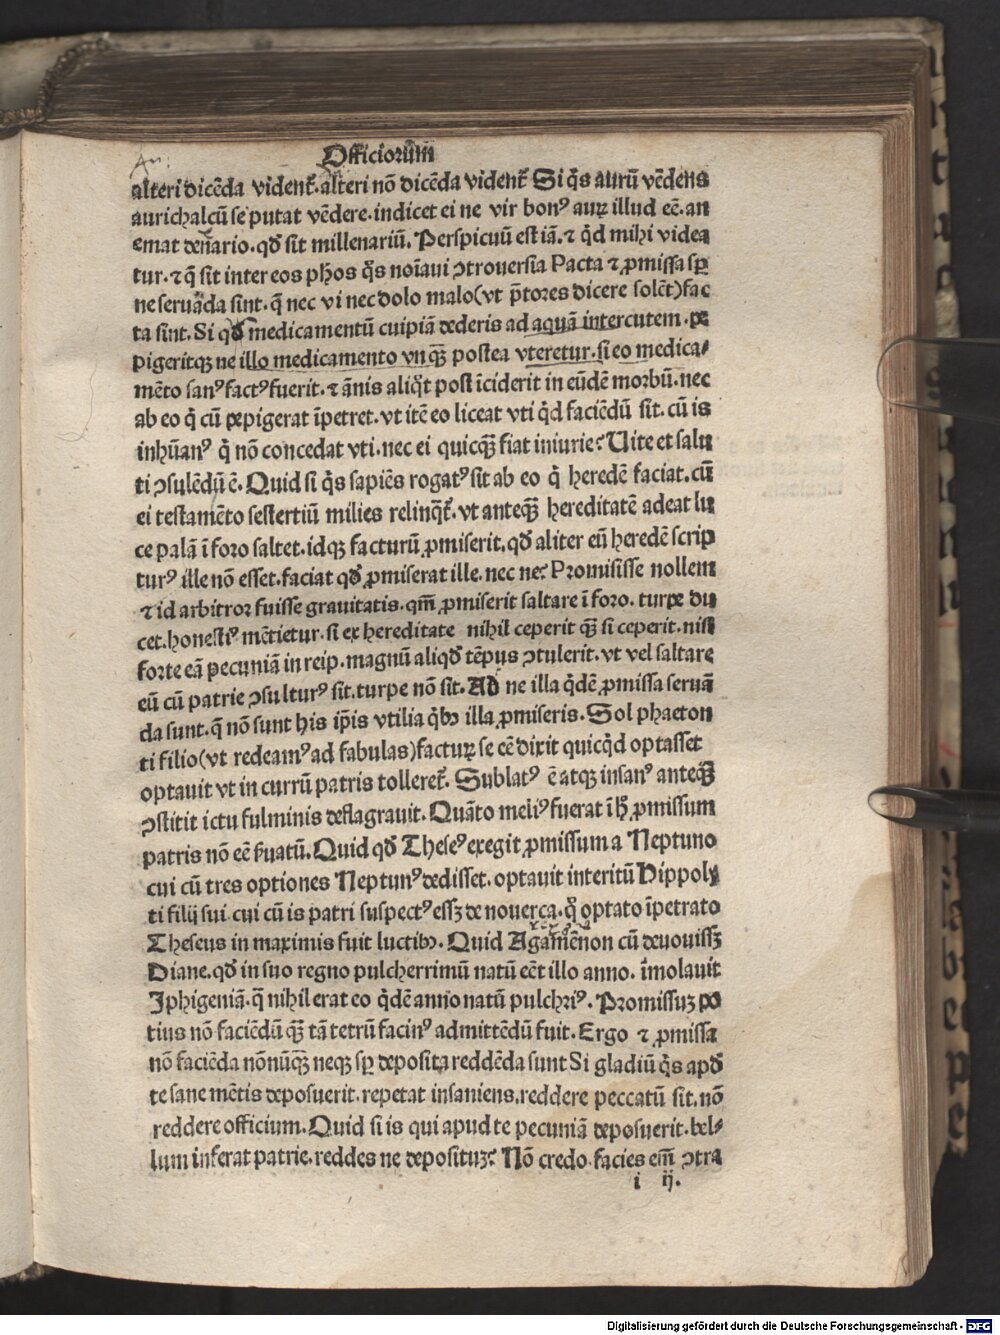 Officiorũm
alteri dicẽda vident᷑. alteri nõ dicẽda vident᷑ Si q̇s aurũ vẽdens
aurichalcũ se putat vẽdere. indicet ei ne vir bonꝰ auꝝ illud eẽ. an
emat denario. qd̛ sit millenariũ. Perspicuũ est iã. ⁊ q̇d mihi videa
tur. ⁊ q̃ sit inter eos ph̃os q̇s noĩaui ↄtrouersia Pacta ⁊ ꝓmissa sꝑ
ne seruãda sint. q̃ nec vi nec dolo malo (vt p̃tores dicere solẽt) fac
ta sint. Si qd̛ medicamentũ cuipiã dederis ad aquã intercutem. pe
pigeritqꝫ ne illo medicamento vnqꝫ̃ postea vteretur. si eo medica⸗
mẽto sanꝰ factꝰ fuerit. ⁊ ãnis aliq̇t post ĩciderit in eũdẽ morbũ. nec
ab eo q̇ cũ pepigerat ĩpetret. vt itẽ eo liceat vti q̇d faciẽdũ sit. cũ is
inhũanꝰ q̇ nõ concedat vti. nec ei quicqꝫ̃ fiat iniurie? Uite et salu
ti ↄsulẽdũ ẽ. Quid si q̇s sapiẽs rogatꝰ sit ab eo q̇ heredẽ faciat. cũ
ei testamẽto sestertiũ milies relinq̇t᷑. vt anteqꝫ̃ hereditatẽ adeat lu
ce palã ĩ foro saltet. idqꝫ facturũ ꝓmiserit. qd̛ aliter eũ heredẽ scrip
turꝰ ille nõ esset. faciat qd̛ ꝓmiserat ille. nec ne? Promisisse nollem
⁊ id arbitror fuisse grauitatis. qm̃ ꝓmiserit saltare ĩ foro. turpe du
cet. honestiꝰ mẽtietur. si ex hereditate nihil ceperit qꝫ̃ si ceperit. nisi
forte eã pecuniã in reip. magnũ aliqd̛ tẽpus ↄtulerit. vt vel saltare
eũ cũ patrie ↄsulturꝰ sit. turpe nõ sit. Ad ne illa q̇dẽ ꝓmissa seruã
da sunt. q̃ nõ sunt his ip̃is vtilia q̇bꝫ illa ꝓmiseris. Sol phaeton
ti filio (vt redeamꝰ ad fabulas) facturꝝ se eẽ dixit quicq̇d optasset
optauit vt in currũ patris tolleret᷑. Sublatꝰ ẽ atqꝫ insanꝰ anteqꝫ̃
ↄstitit ictu fulminis deflagrauit. Quãto meliꝰ fuerat ĩ h̛ ꝓmissum
patris nõ eẽ ẜuatũ. Quid qd̛ Theseꝰ exegit ꝓmissum a Neptuno
cui cũ tres optiones Neptunꝰ dedisset. optauit interitũ Hippoly
ti filij sui. cui cũ is patri suspectꝰ essꝫ de nouerca. q̊ optato ĩpetrato
Theseus in maximis fuit luctibꝫ. Quid Agamẽnon cũ deuouissꝫ
Diane. qd̛ in suo regno pulcherrimũ natũ eẽt illo anno. ĩmolauit
Iphigeniã. q̃ nihil erat eo q̇dẽ anno natũ pulchriꝰ. Promissuꝫ po
tius nõ faciẽdũ qꝫ̃ tã tetrũ facinꝰ admittẽdũ fuit. Ergo ⁊ ꝓmissa
nõ faciẽda nõnũqꝫ̃ neqꝫ sꝑ deposita reddẽda sunt Si gladiũ q̇s apd̛
te sane mẽtis deposuerit. repetat insaniens. reddere peccatũ sit. nõ
reddere officium. Quid si is qui apud te pecuniã deposuerit. bel⸗
lum inferat patrie. reddes ne depositũꝫ? Nõ credo. facies em̃ ↄtra
i ij.
Digitalisierung gefördert durch die Deutsche Forschungsgemeinschaft - DFG